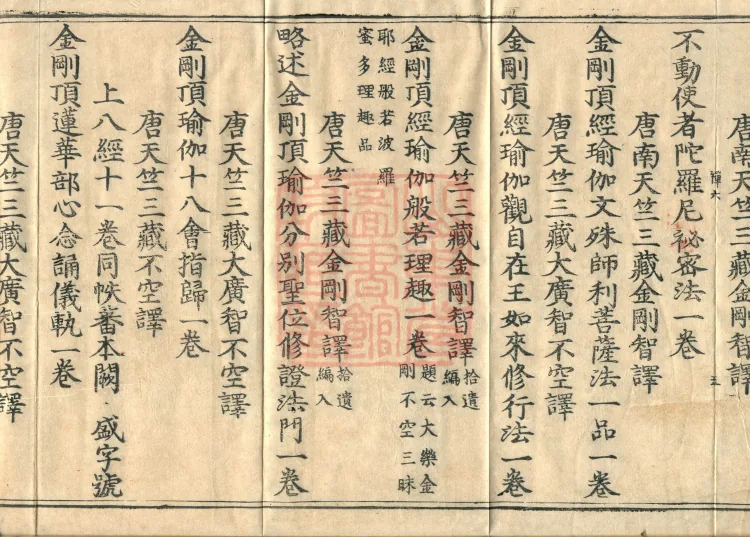 唐南天竺三藏金剛智譯
禪六
五
不動使者陀羅尼祕密法一卷
唐南天竺三藏金剛智譯
金剛頂經瑜伽文殊師利菩薩法一品一卷
唐天竺三藏大廣智不空譯
金剛頂經瑜伽觀自在王如來修行法一卷
唐天竺三藏金剛智譯拾遺編入
金剛頂經瑜伽般若理趣一卷題云大樂金剛不空三昧
耶經般若波羅
蜜多理趣品
唐天竺三藏金剛智譯拾遺編入
略述金剛頂瑜伽分別聖位修證法門一卷
唐天竺三藏大廣智不空譯
金剛頂瑜伽十八會指歸一卷
唐天竺三藏不空譯
上八經十一卷同帙蕃本闕 盛字號
金剛頂蓮華部心念誦儀軌一卷
唐天竺三藏大廣智不空譯